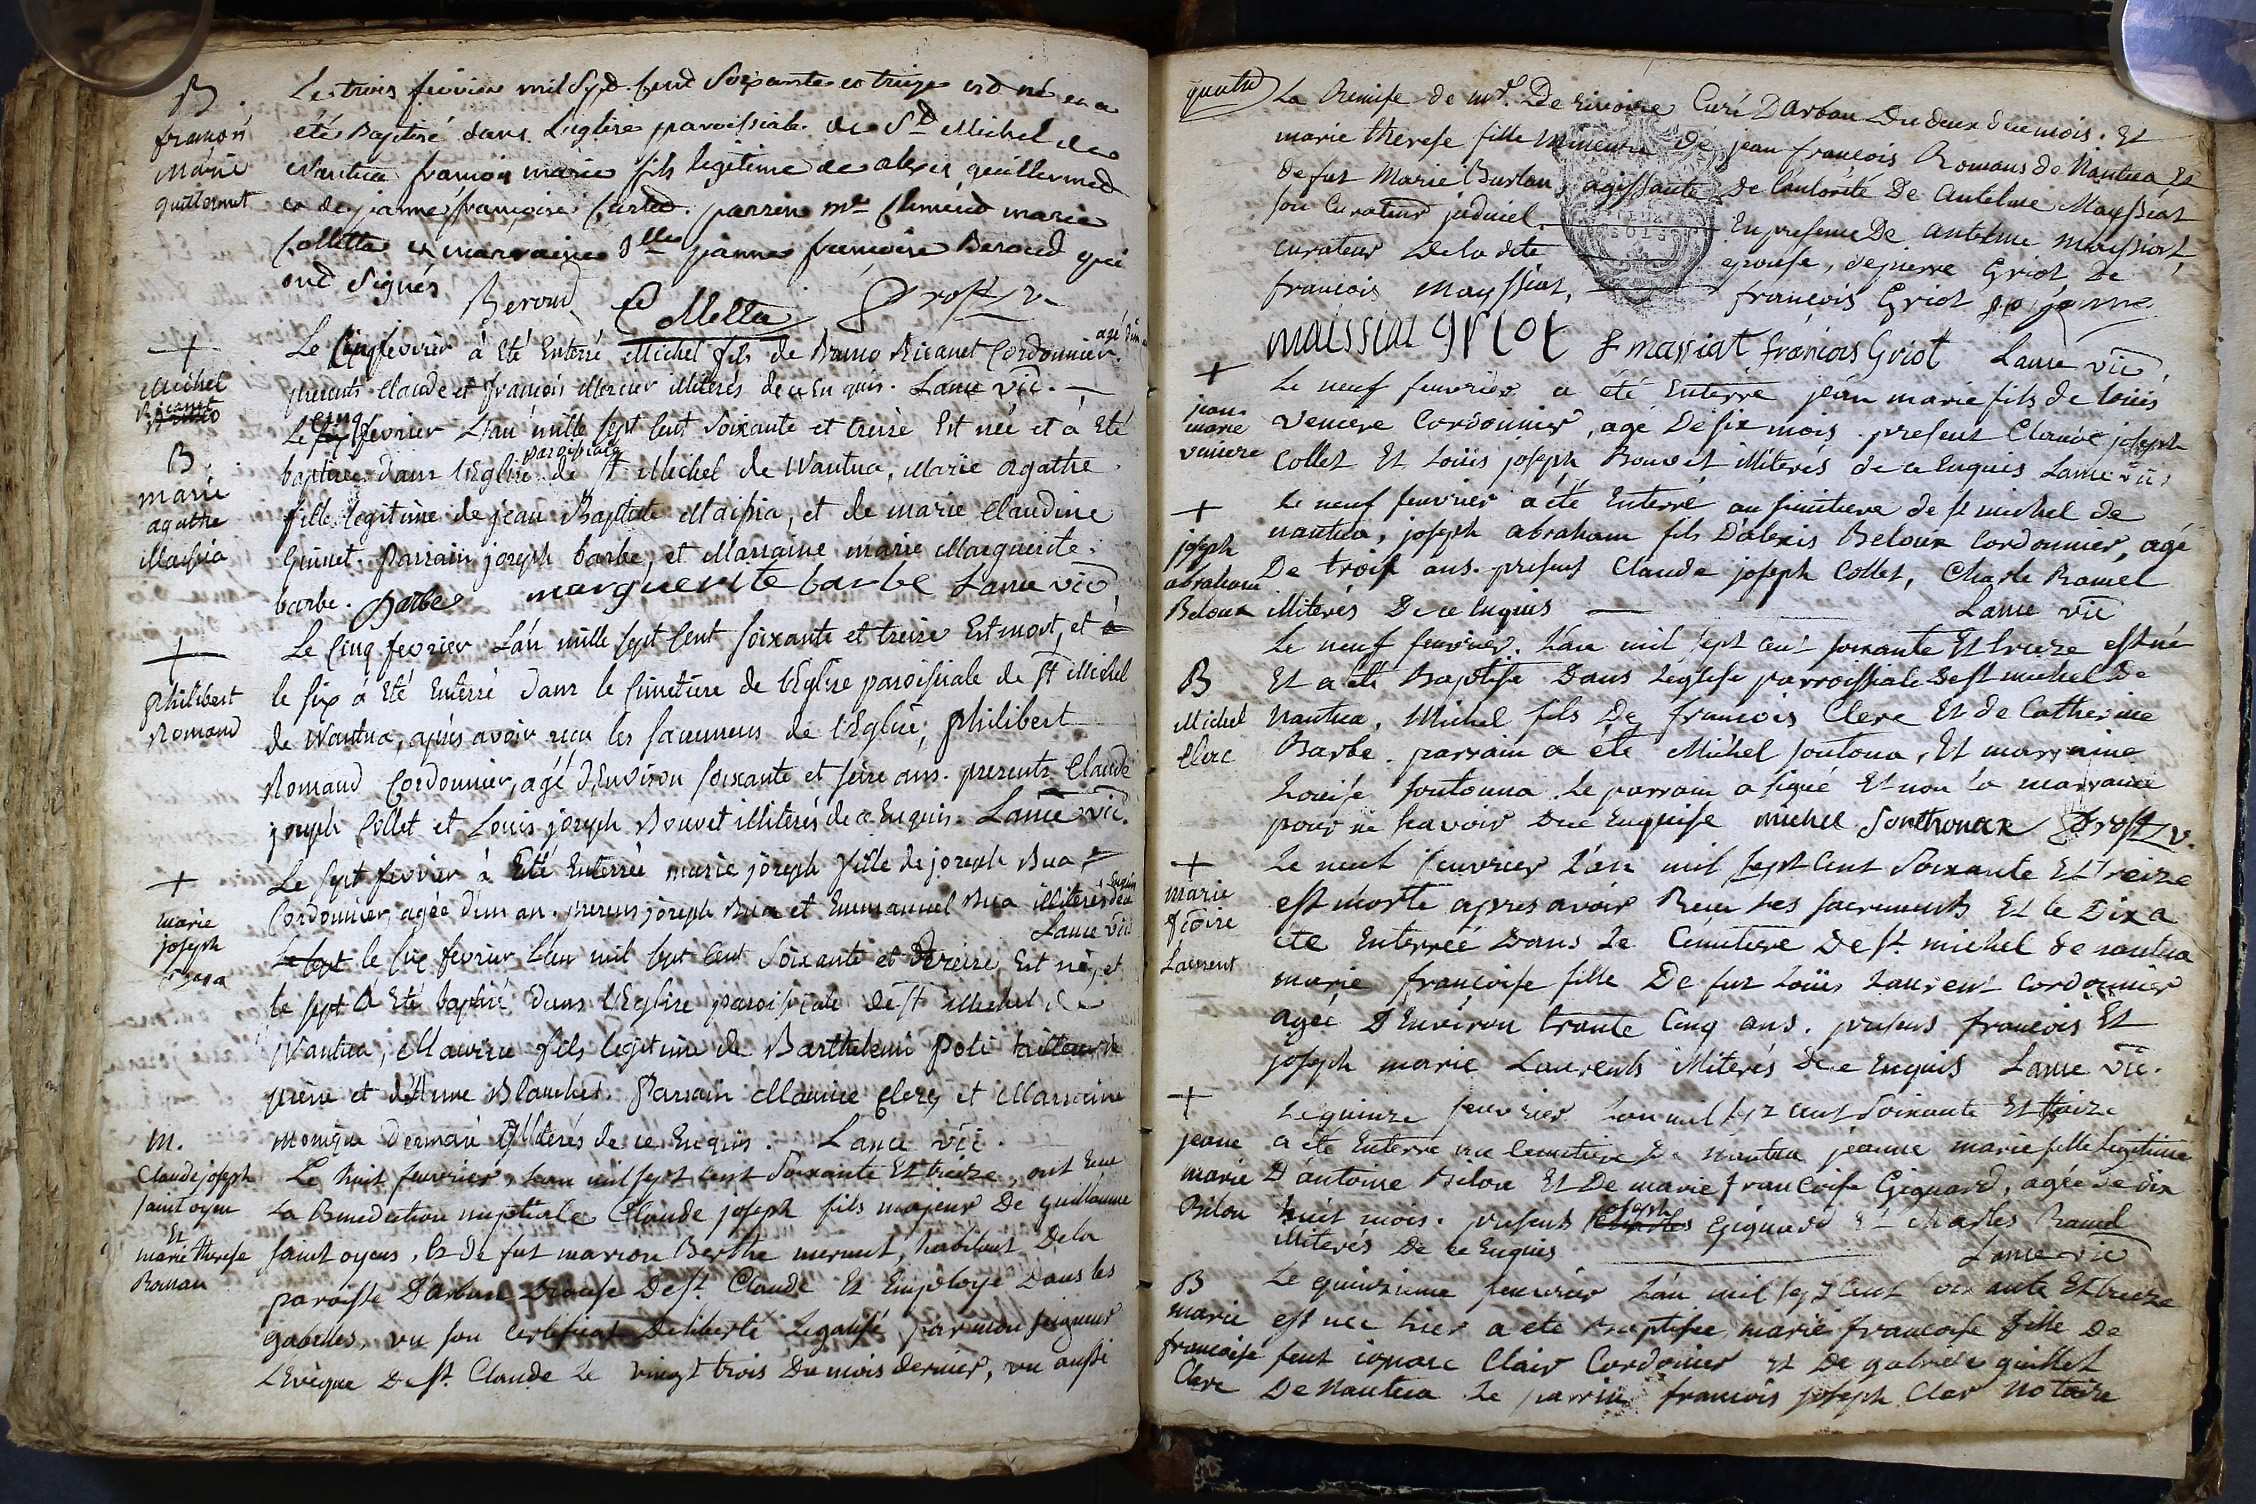 B.
françois
marie
guillermet
Le trois fevrier mil sept cent soixante et treize est né et a
été baptisé dans l'eglise paroissiale de St Michel de
Nantua françois marie fils legitime de alexis guillermet
et de jeanne françoise Curtet. parrein mre Clement marie
Colletta et marraine dlle jeanne francoise Beroud qui
ont signés
Beroud Colletta Prost v.
+
Michel
Ricanet
Le Cinq fevrier à Eté Enterré Michel fils de Bruno Ricanet Cordonnier. agé d'un an
presents Claude et françois Mercier illiterés de ce Enquis. Lance vic.
B.
marie
agathe
Maissia
Le cinq fevrier L'an mille sept Cent soixante et treize Est née et à Eté
baptisée dans l'Eglise paroissiale de St Michel de Nantua, Marie agathe
fille legitime de jean Baptiste Maissia, et de marie Claudine
Guinet. Parrain joseph barbe, et Marraine marie Marguerite
barbe. Barbe marguerite barbe Lance vic.
+
Philibert
Romand
Le Cinq fevrier L'an mille sept Cent soixante et treize Est mort, et
le six à Eté Enterré dans le Cimetiere de l'Eglise paroissiale de St Michel
de Nantua, après avoir reçu les sacremens de l'Eglise, Philibert
Romand Cordonnier, agé d'Environ soixante et seize ans. presents Claude
joseph Collet et Louis joseph Bouvet illiterés de ce Enquis. Lance vic.
+
marie
joseph
Bua
Le sept fevrier à Eté Enterrée marie joseph fille de joseph Bua
Cordonnier, agée d'un an. presens joseph Bua et Emmanuel Bua illiterés de ce Enquis
Lance vic
Le sept le six fevrier L'an mil sept Cent soixante et treize Est né, et
le sept à Eté baptisé dans l'Eglise paroissiale de St Michel de
Nantua, Maurice fils legitime de Barthelemi Poli tailleur de
pierre et d'Anne Blanchet. Parrain Maurice Clerc et Marraine
Monique illiterés de ce Enquis. Lance vic.
M.
Claude joseph
saint oyen
Et
marie therese
Roman
Le huit feuvrier, L'an mil sept Cent soixante Et treize, ont Eue
La Benediction nuptiale Claude joseph fils majeur De guillaume
saint oyens, Et de fut marion Berthe mermet, habitant De la
paroisse D'arban Diocese De St Claude Et Employé Dans les
gabelles, vu son certificat De liberté Legalisé par mon seigneur
L'Evêque De St Claude Le vingt trois Du mois dernier, vu aussi
quatre
La Remise de mr. De rivoire Curé D'arban Du deux du mois. Et
marie therese fille mineure De jean françois Romans de Nantua Et
de fut Marie Burlan, agissante De l'autorité De antelme Mayssiat
son Curateur judiciel. En presence De antelme maissiat,
curateur De la dite epouse, de pierre Griot De
francois Mayssiat, françois Griot
maissiat griot f massiat françois Griot Lance vic.
+
jean
marie
veniere
Le neuf feuvrier a été Enterré jean marie fils de louis
veniere Cordonnier, agé De six mois. present Claude joseph
Collet Et Loüis joseph Bouvet illiterés de ce Enquis Lance vic.
+
joseph
abraham
Beloux
Le neuf feuvrier a été Enterré au simitiere de st michel de
nantua, joseph abraham fils D'alexis Beloux Cordonnier, agé
De trois ans. presens Claude joseph Collet, Charle Ramel
illiterés De ce Enquis Lance vic
B
Michel
Clerc
Le neuf feuvrier. L'an mil sept cent soixante Et treize est né
Et a été Baptisé Dans l'eglise parroissiale De st michel De
Nantua, Michel fils De francois Clerc Et de Catherine
Barbe. parrain a été Michel sontona, Et marraine
Louise sontonna. Le parrain a signé Et non la marraine
pour ne scavoir De ce Enquise michel Sonthonax Prost v.
+
marie
Laurent
Le neuf feuvrier L'an mil sept Cent soixante Et treize
est morte apres avoir Reçu Les sacrements Et le Dix a
été Enterreé Dans Le Cimetiere De st michel de nantua
marie françoise fille De fut Loüis Laurent Cordonnier
agée D'Environ trante Cinq ans. presens francois Et
joseph marie Laurents illiterés De ce Enquis Lance vic.
+
jeane
marie
Bilon
Le quinze feuvrier L'an mil sept cent soixante Et treize
a été Enterré au Cemetiere De nantua jeanne marie fille legitime
D'antoine Bilon Et De marie francoise Geignard, agée de dix
huit mois. presens joseph Geignard Et Charles Ramel
illiterés De ce Enquis Lance vic
B
marie
francoise
Clerc
Le quinzieme feuvrier L'an mil sept Cent soixante Et treize
est nee hier a eté Baptisée marie francoise fille De
feut ignace Clair Cordonier et De gabriele guillet
De Nantua Le parrin francois joseph Cler Notaire